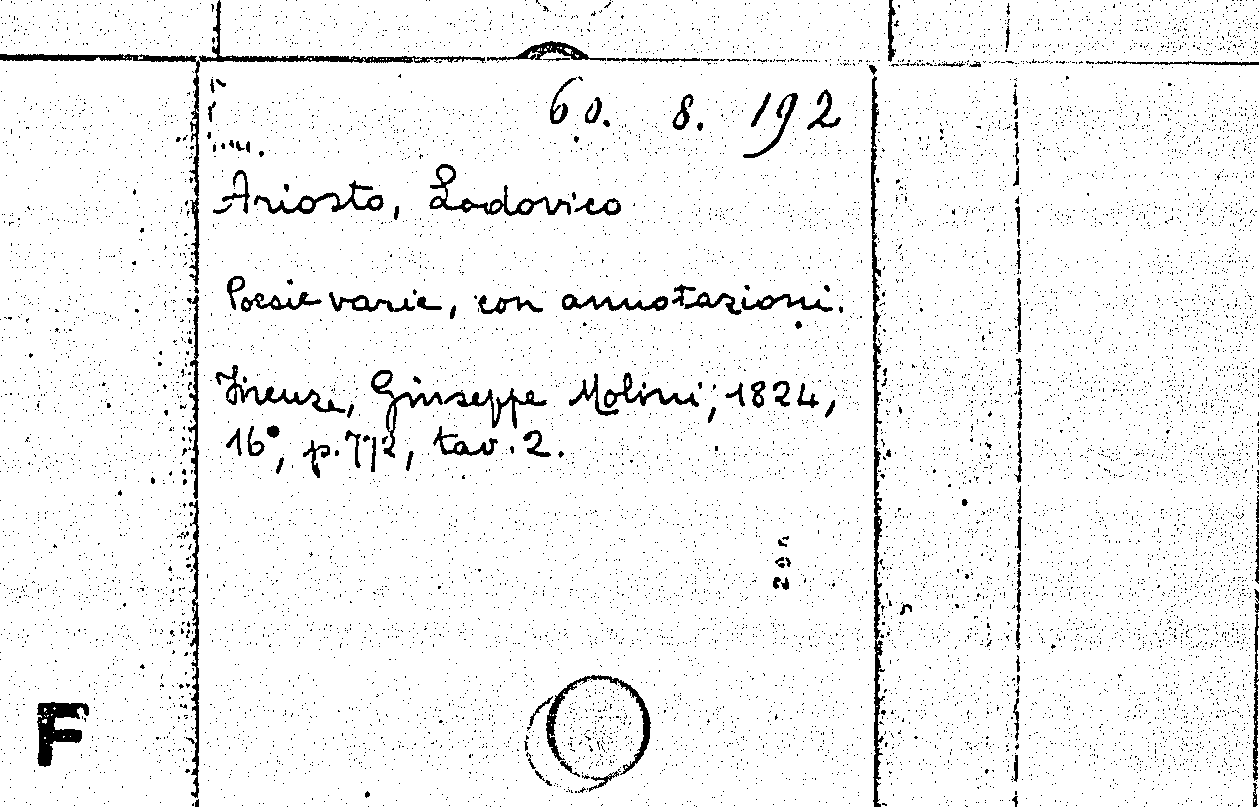 60. 8. 192
Ariosto, Lodovico
Poesie varie, con annotazioni.
Firenze, Giuseppe Molini, 1824,
16°, p. 772, tav. 2.
F